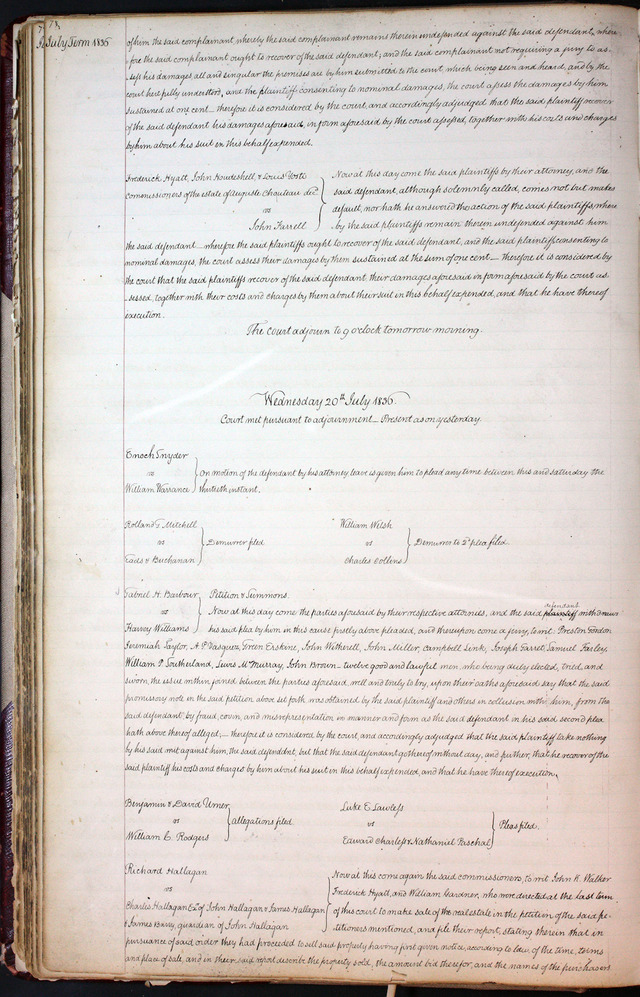 July Term 1836
of him the said complainant, whereby the said complainant remains therein undefended against the said defendant, where
fore the said complainant ought to recover of the said defendant; and the said complainant not requiring a jury to as
sess his damages, all and singular the premises are by him submitted to the court, which being seen and heard, and by the
court here fully understood, and the plaintiff consenting to nominal damages, the court assess the damages by him
sustained at one cent — therefore it is considered by the court, and accordingly adjudged that the said plaintiff recover
of the said defendant his damages aforesaid, in form aforesaid by the court assessed, together with his costs and charges
by him about his suit in this behalf expended.
Frederick Hyatt, John &
commissioners of the estate of Auguste Chouteau decd
vs
John Farrell
Now at this day come the said plaintiffs by their attorney, and the
said defendant, although solemnly called, comes not but makes
default, nor hath he answered the action of the said plaintiffs, where
by the said plaintiffs remain therein undefended against him
the said defendant — wherefore the said plaintiffs ought to recover of the said defendant, and the said plaintiffs consenting to
nominal damages, the court assess their damages by them sustained at the sum of one cent — Therefore it is considered by
the court that the said plaintiffs recover of the said defendant their damages aforesaid in form aforesaid by the court as
sessed, together with their costs and charges by them about their suit in this behalf expended, and that he have thereof
execution.
The court adjourn to 9 o'clock tomorrow morning.
Wednesday 20th July 1836.
Court met pursuant to adjournment — Present as on yesterday.
Enoch Snyder
vs
William Warrance
On motion of the defendant by his attorney leave is given him to plead any time between this and Saturday the
thirtieth instant.
Rolland G Mitchell
vs
Eads & Buchanan
Demurrer filed
William Welsh
vs
Charles Collins
Demurrer to 2d plea filed.
Gabriel H. Barbour
vs
Harvey Williams
Petition & Summons.
Now at this day come the parties aforesaid by their respective attornies, and the said plaintiff defendant withdraws
his said plea by him in this cause firstly above pleaded, and thereupon come a jury, to wit: Preston Gordon
Jeremiah Taylor, A P Vasquez, Green Erskine, John Witherell, John Miller, Campbell Link, Joseph Garret, Samuel Farley,
William P. Southerland, Lewis McMurray, John Brown — twelve good and lawful men, who being duly elected, tried, and
sworn, the issue within joined between the parties aforesaid, well and truly to try, upon their oaths aforesaid say that the said
promissory note in the said petition above set forth was obtained by the said plaintiff and others in collusion with him, from the
said defendant, by fraud, covin, and misrepresentation in manner and form as the said defendant in his said second plea
hath above thereof alleged, — therefore it is considered by the court, and accordingly adjudged that the said plaintiff take nothing
by his said writ against him, the said defendant, but that the said defendant go thereof without day, and further, that he recover of the
said plaintiff his costs and charges by him about his suit in this behalf expended, and that he have thereof execution.
Benjamin & David Urner
vs
William C. Rodgers
allegations filed.
Luke E Lawless
vs
Edward Charless & Nathaniel Paschal
Pleas filed.
Richard Hallagan
vs
Charles Hallagan Exr of John Hallagan & James Hallagan
& James Barry, guardian of John Hallagan
Now at this come again the said commissioners, to wit John K. Walker
Frederick Hyatt, and William Gardner, who were directed at the last term
of this court to make sale of the real estate in the petition of the said pe-
titioners mentioned, and file their report, stating therein that in
pursuance of said order they had proceeded to sell said property having first given notice, according to law, of the time, terms
and place of sale, and in their said report describe the property sold, the amount bid therefor, and the names of the purchasers